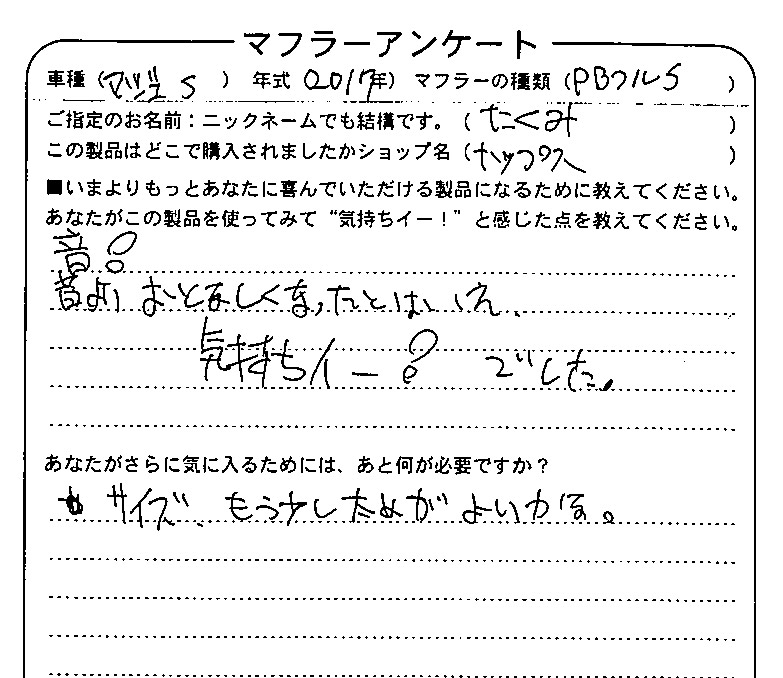 マフラーアンケート
車種（マジェS） 年式（2017年） マフラーの種類（PBフルS）
ご指定のお名前：ニックネームでも結構です。（たくみ）
この製品はどこで購入されましたかショップ名（ナップス）
■いまよりもっとあなたに喜んでいただける製品になるために教えてください。
あなたがこの製品を使ってみて“気持ちイー！”と感じた点を教えてください。
音!
昔より おとなしくなったとはいえ、
気持ちイー! でした。
あなたがさらに気に入るためには、あと何が必要ですか？
サイズ、もう少し 
がよいかな。